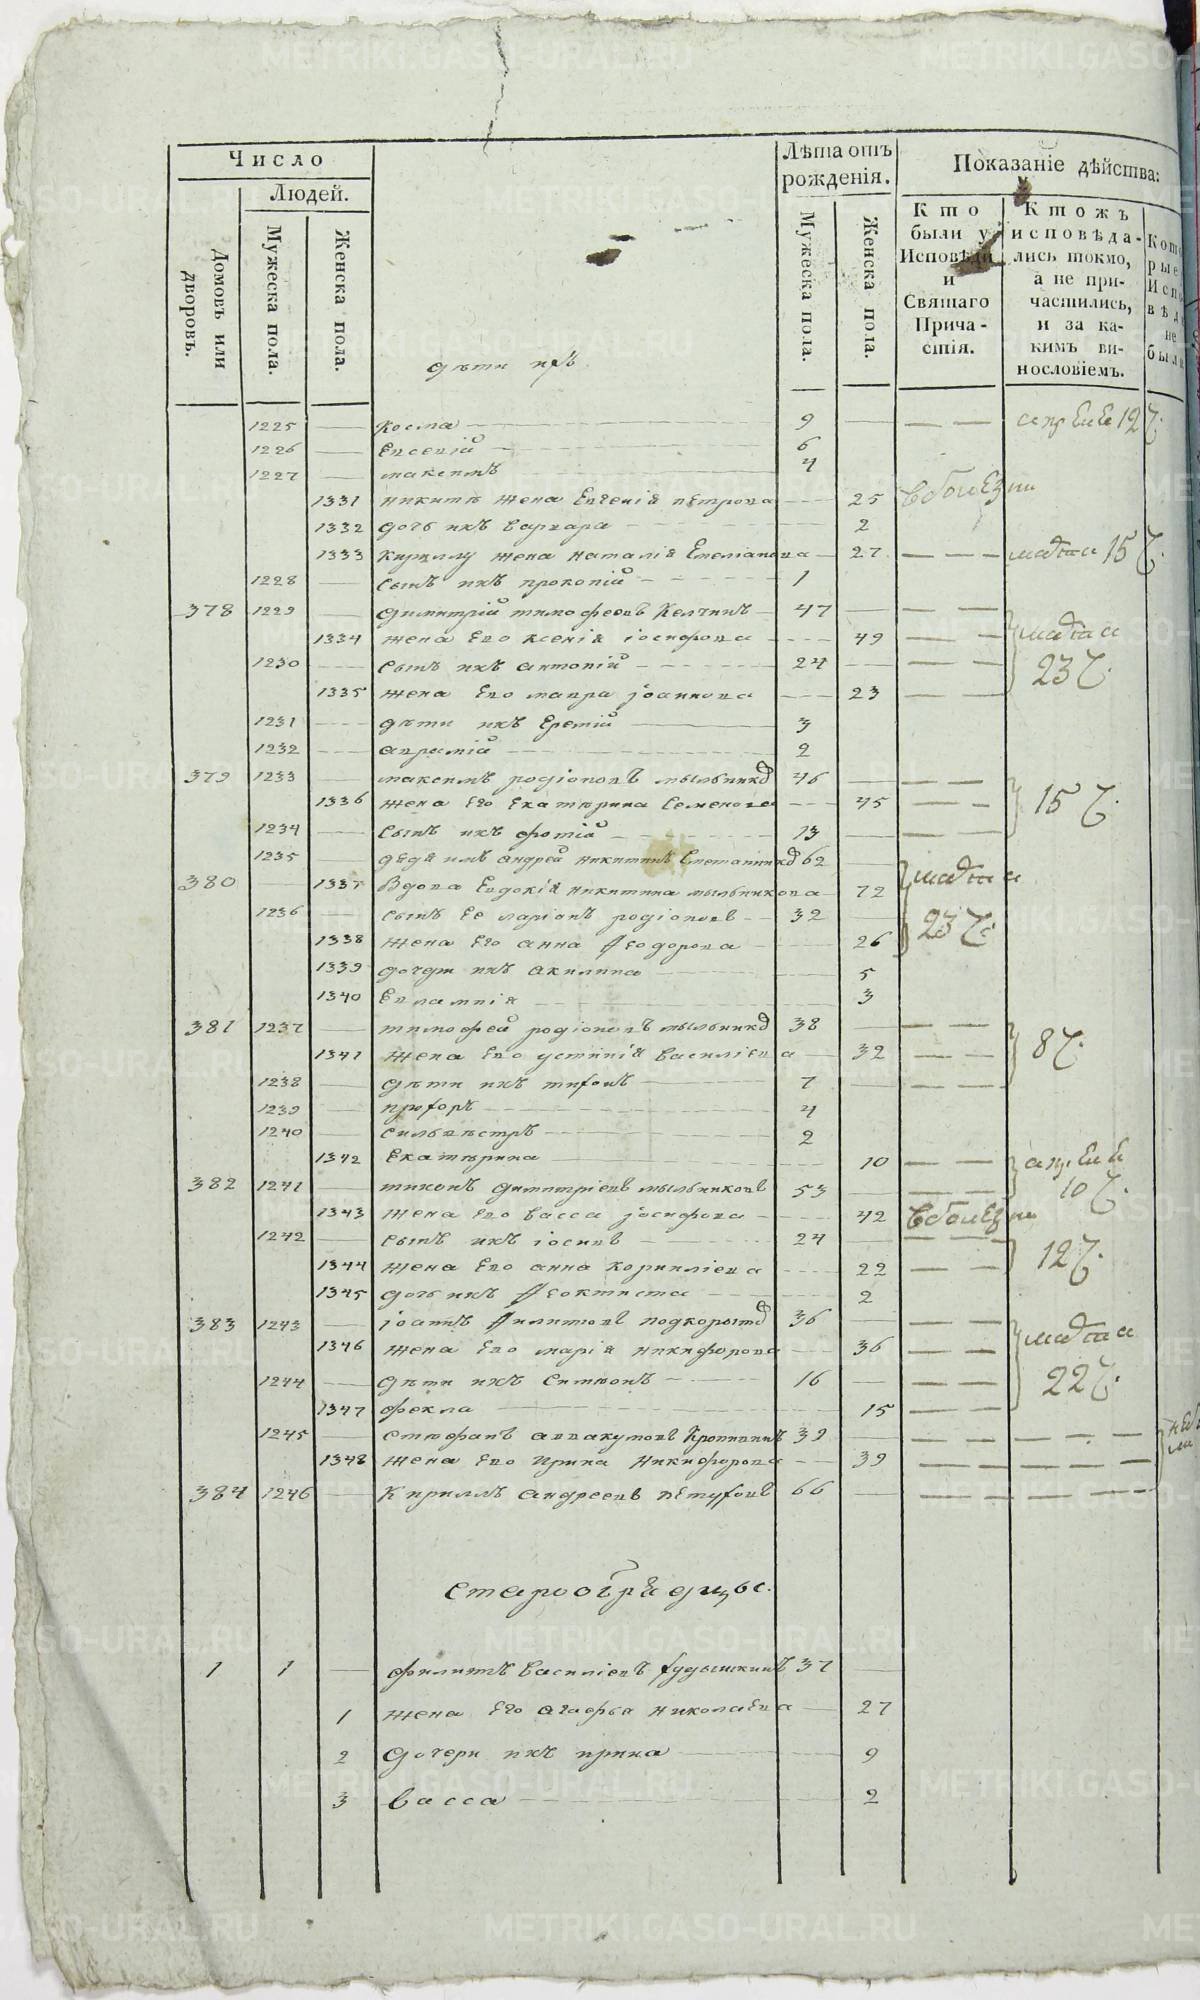 Число
Людей.
Домовъ или дворовъ.
Мужеска пола.
Женска пола.
Лѣта отъ рожденія.
Мужеска пола.
Женска пола.
Показаніе дѣйства:
Кто были у Исповѣди и Святаго Причастія.
Ктожъ исповѣдались токмо, а не причастились, и за какимъ винословіемъ.
дѣти ихъ
1225 — косма — 9 — — —
1226 — Евсевій — 6
1227 — максимъ 4
1331 никиты жена Евгенія петрова 25 в болезни
1332 дочь ихъ варвара 2
1333 кириллу жена наталія Емеліанова — 27 — — — маѩ 15
1228 — сынъ ихъ прокопій 1
378 1229 — димитрій тимофеевъ 47
1334 жена Его ксенія іосифова 49
1230 сынъ ихъ антоній 24
1335 жена Его мавра іоаннова 23
23
1231 дѣти ихъ 3
1232 2
379 1233 — максимъ родіоновъ мыльник 46
1336 жена Его Екатерина Семенова 45
15
1234 — сынъ ихъ фотій 13
1235 — дядя имъ андрей никитинъ 62
380 — 1337 вдова Евдокія никитина мыльникова — 72
1236 — сынъ Ее ларіонъ родіоновъ 32
1338 жена Его анна Ѳеодорова 26
23
1339 дочери ихъ акилина 5
1340 Евлампія 3
381 1237 — тимофей родіоновъ мыльник 38
1341 жена Его устинія василіева — 32
8
1238 — дѣти ихъ 7
1239 — 4
1240 — сильвестръ 2
1342 Екатерина 10
382 1241 — тихонъ димитріевъ мыльниковъ 53
10
1343 жена Его васса іосифова 42 в болезни
1242 — сынъ ихъ іосифъ 24
12
1344 жена Его анна корниліева 22
1345 дочь ихъ Ѳеоктиста 2
383 1243 — іоаннъ филиповъ подкорыт 36
1346 жена Его марія никифорова 36
1244 — дѣти ихъ Симеонъ 16
22
1347 фекла 15
1245 — стефанъ аввакумовъ 39
1348 жена Его ирина никифорова 39
384 1246 — Кириллъ андреевъ петуховъ 66
старообрядцы.
1 1 — филиппъ василіевъ 37
1 жена Его агафья николаева — 27
2 дочери ихъ ирина 9
3 васса 2
METRIKI.GASO-URAL.RU